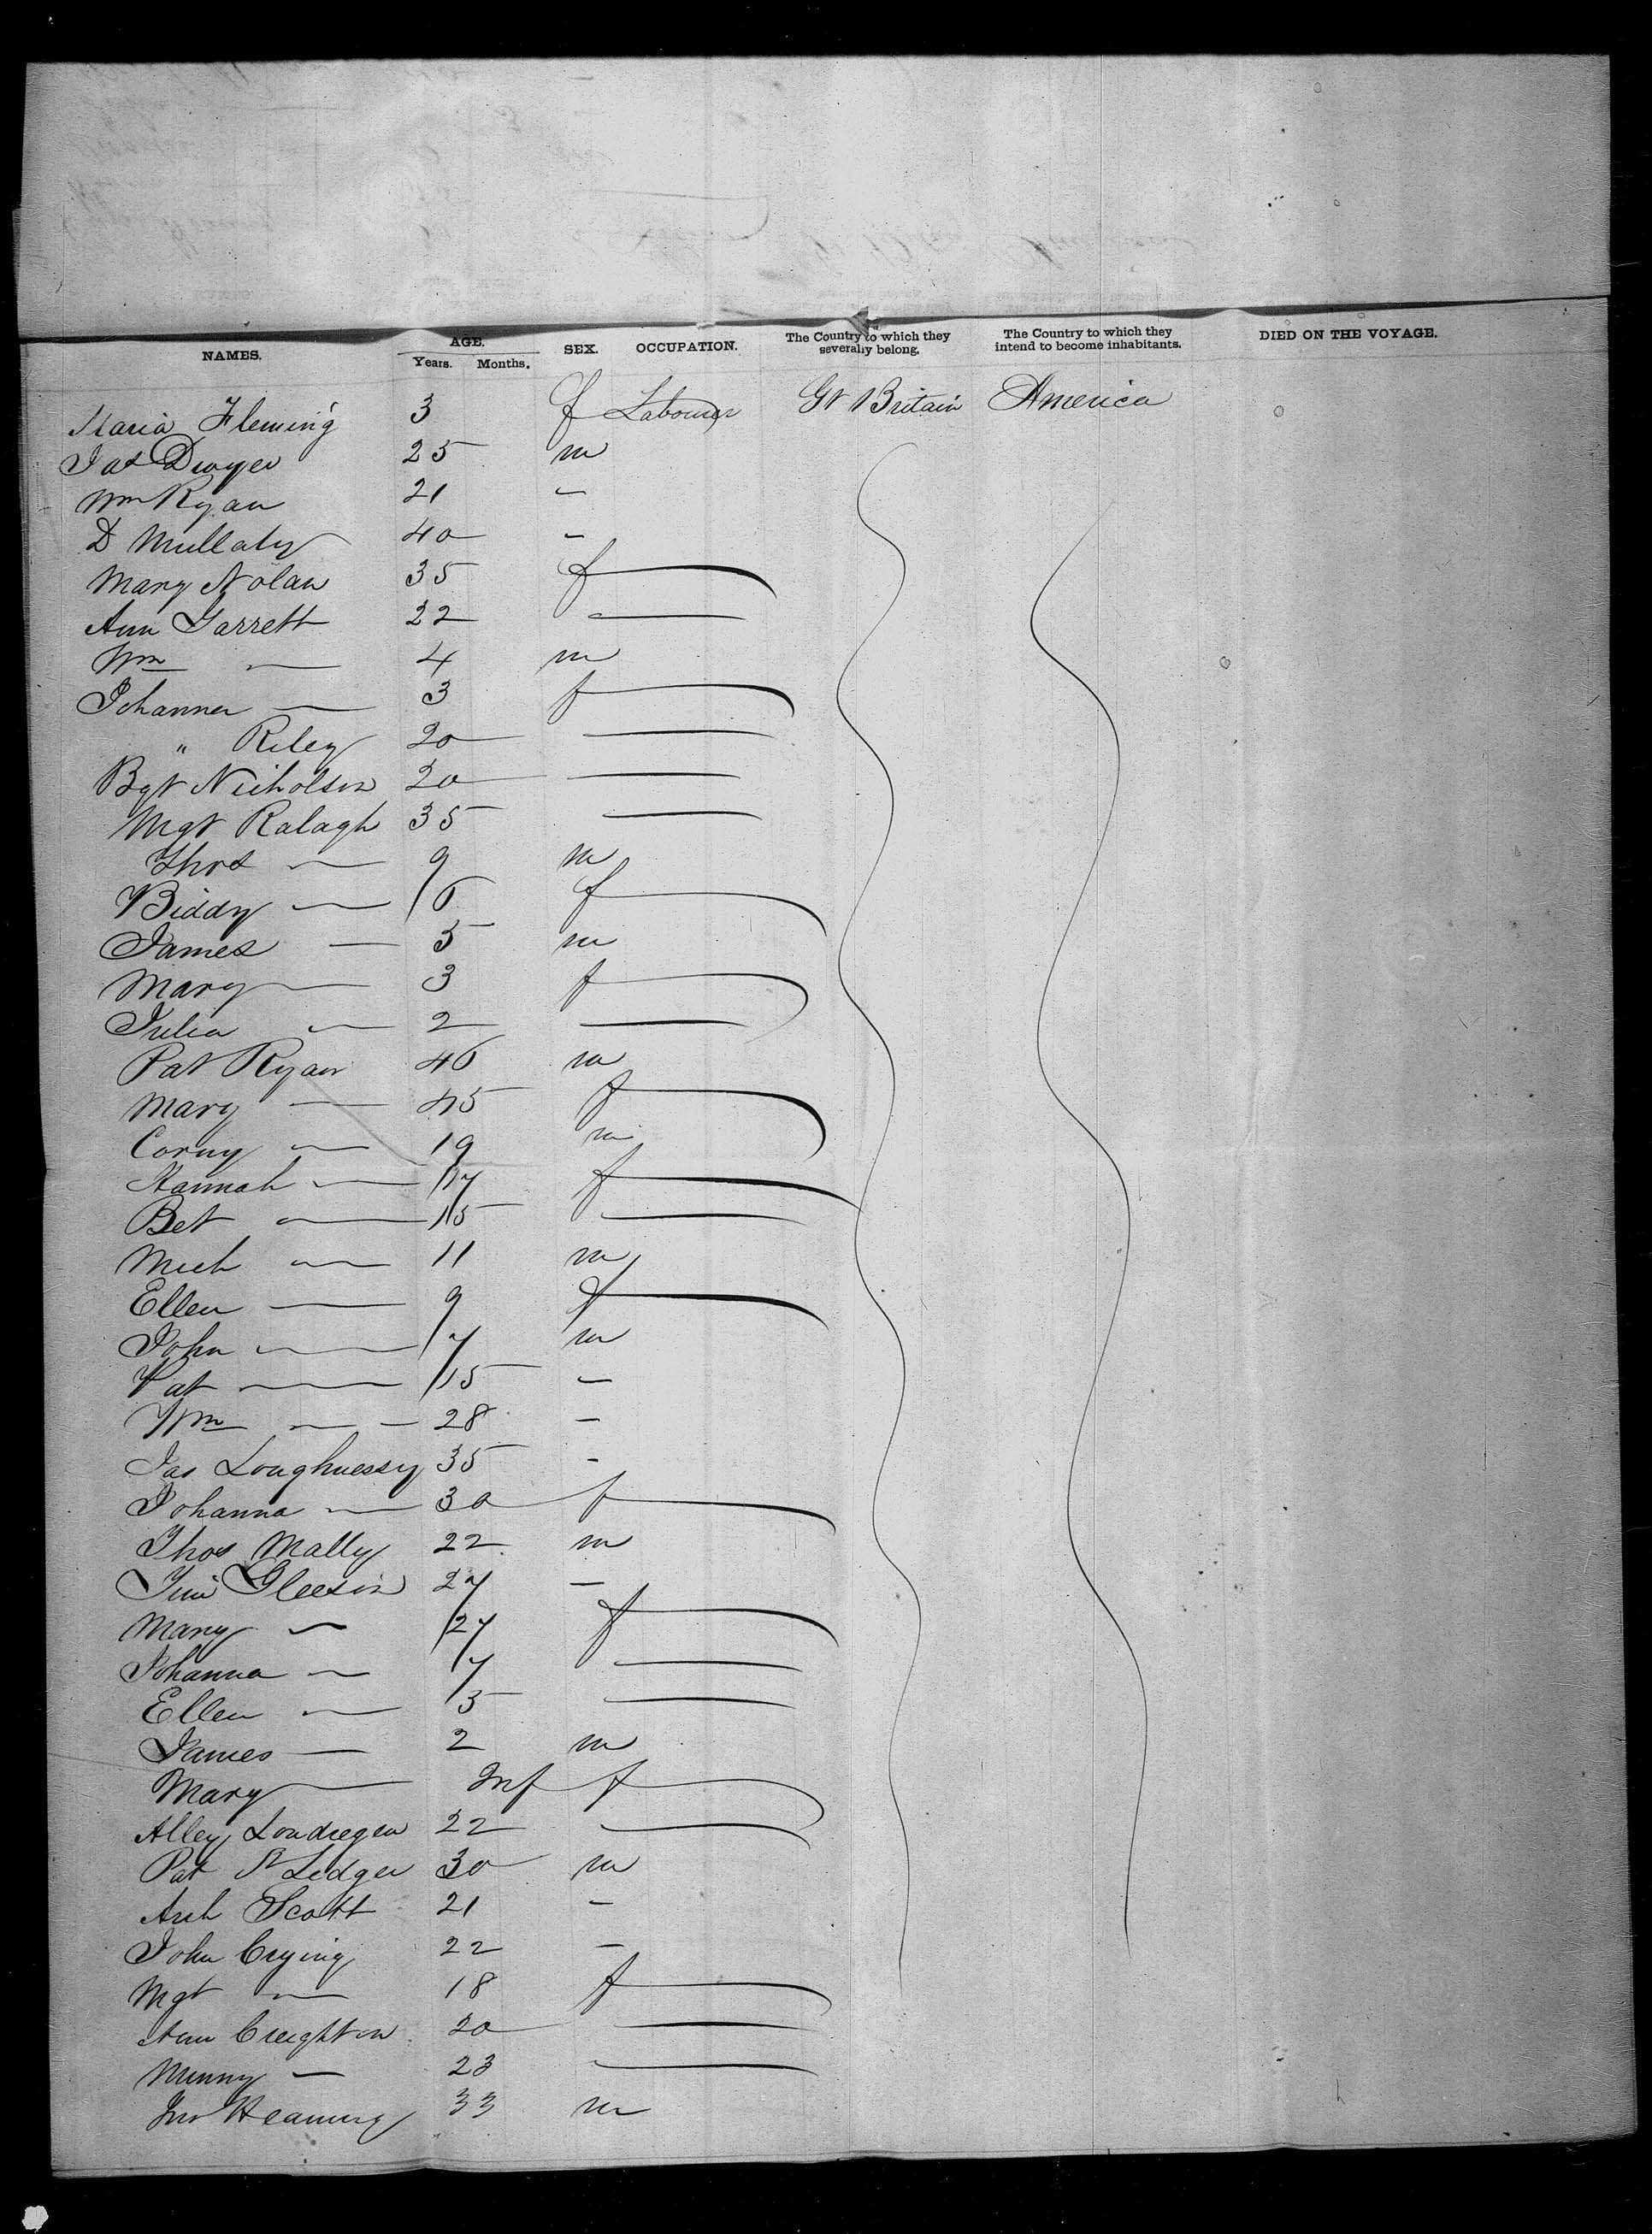 NAMES. AGE. Years. Months. SEX. OCCUPATION. The Country to which they severally belong. The Country to which they intend to become inhabitants. DIED ON THE VOYAGE.
Maria Fleming 3 f Labourer Gt Britain America
Jas Dwyer 25 m
Wm Ryan 21 –
D Mullaly 40 –
Mary Nolan 35 f
Ann Garrett 22 —
Wm — 4 m
Johanna — 3 f
" Riley 20 —
Bgt Nicholson 20 —
Mgt Ralagh 35 —
Thos — 9 m
Biddy — 6 f
James — 5 m
Mary — 3 f
Julia — 2 —
Pat Ryan 46 m
Mary — 45 f
Corny — 19 m
Hannah — 17 f
Bet — 15 —
Mich — 11 m
Ellen — 9 f
John — 7 m
Pat — 15 –
Wm — 28 –
Jas Loughnessy 35 -
Johanna — 30 f
Thos Mally 22 m
Jim Gleeson 27 –
Mary — 27 f
Johanna — 7 —
Ellen — 5 —
James — 2 m
Mary — Inf f
Alley Londregen 22 —
Pat St Ledger 30 m
Arch Scott 21 –
John Crying 22 –
Mgt — 18 f
Ann Creighton 20 —
Minny — 23 —
Jno Heaming 33 m